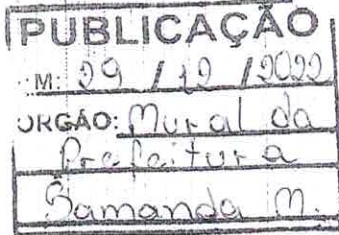 PUBLICAÇÃO
M: 29 / 12 / 2022
ORGÃO: Mural da
Prefeitura
Samanda M.